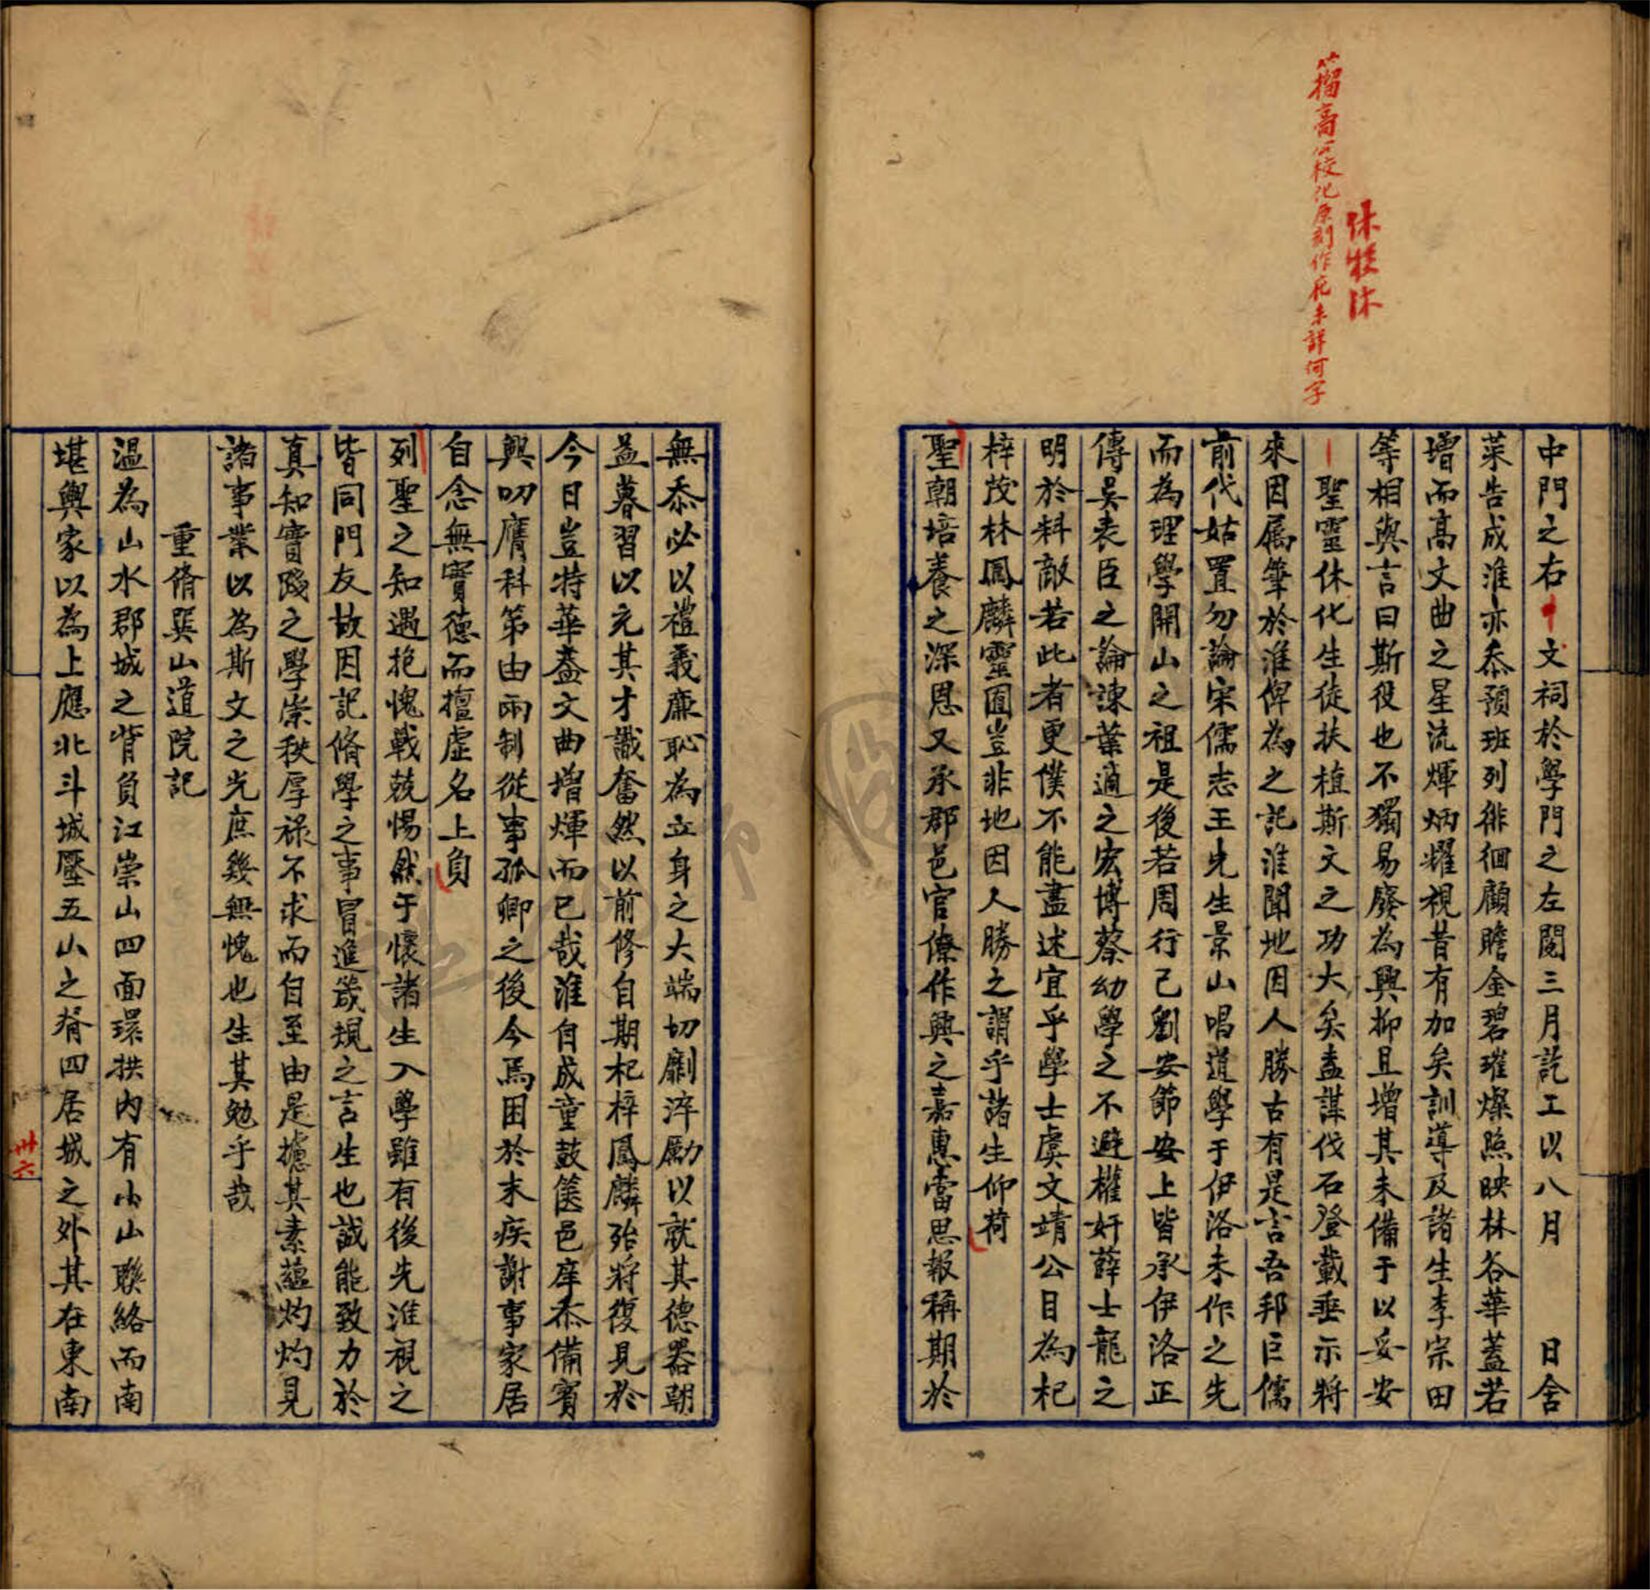 休牲沐
高公校化原刻作花未詳何字
中門之右文祠於學門之左閱三月訖工以八月 日舍
菜告成淮亦忝預班列徘徊顧瞻金碧璀燦照映林谷華蓋若
增而高文曲之星流煇炳耀視昔有加矣訓導及諸生李宗田
等相與言曰斯役也不獨易廢為興抑且增其未備于以妥安
聖靈休化生徒扶植斯文之功大矣盍謀伐石登載垂示將
來因属筆於淮俾為之記淮聞地因人勝古有是言吾邦巨儒
前代姑置勿論宋儒志王先生景山唱道學于伊洛未作之先
而為理學開山之祖是後若周行己劉安節安上皆承伊洛正
傳吳表臣之論諫葉適之宏博蔡幼學之不避權奸薛士龍之
明於料敵若此者更僕不能盡述宜乎學士虞文靖公目為杞
梓茂林鳳麟靈囿豈非地因人勝之謂乎諸生仰荷
聖朝培養之深恩又承郡邑官僚作興之嘉惠當思報稱期於
無忝必以禮義廉恥為立身之大端切劘淬勵以就其德器朝
益暮習以充其才識奮然以前修自期杞梓鳳麟殆將復見於
今日豈特華蓋文曲增煇而已哉淮自成童鼓篋邑庠忝備賓
興叨膺科第由兩制從事孤卿之後今焉困於末疾謝事家居
自念無實德而擅虛名上負
列聖之知遇抱愧戰兢惕然于懷諸生入學雖有後先淮視之
皆同門友故因記脩學之事冒進箴規之言生也誠能致力於
真知實踐之學崇秩厚祿不求而自至由是攄其素蘊灼灼見
諸事業以為斯文之光庶幾無愧也生其勉乎哉
重脩巽山道院記
溫為山水郡城之背負江崇山四面環拱內有小山聯絡而南
堪輿家以為上應北斗城壓五山之脊四居城之外其在東南
卅六